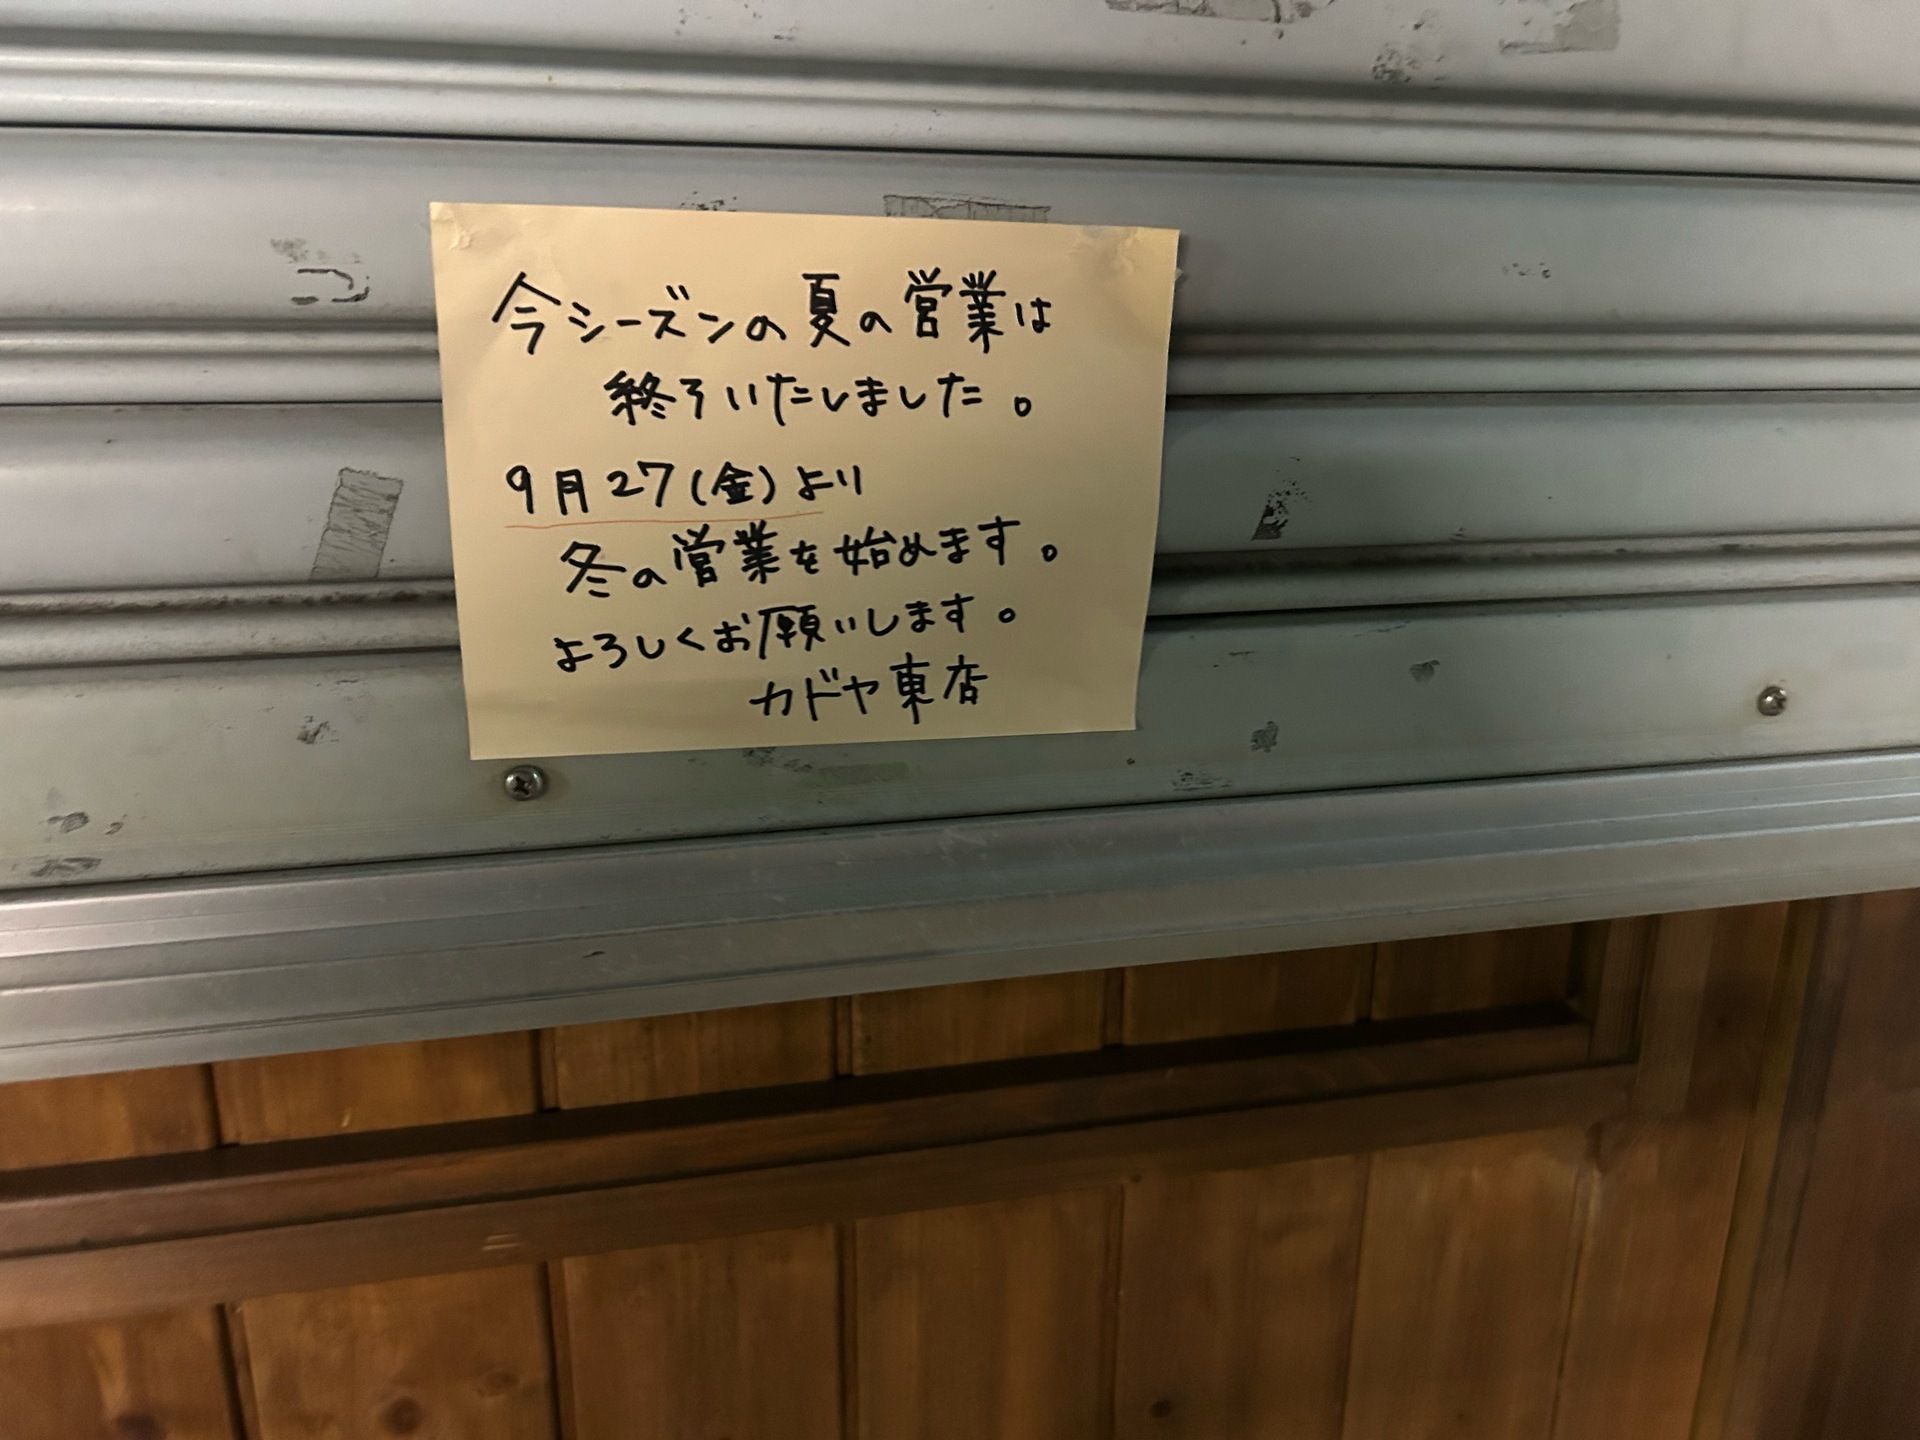 今シーズンの夏の営業は
終了いたしました。
9月27(金)より
冬の営業を始めます。
よろしくお願いします。
カドヤ東店